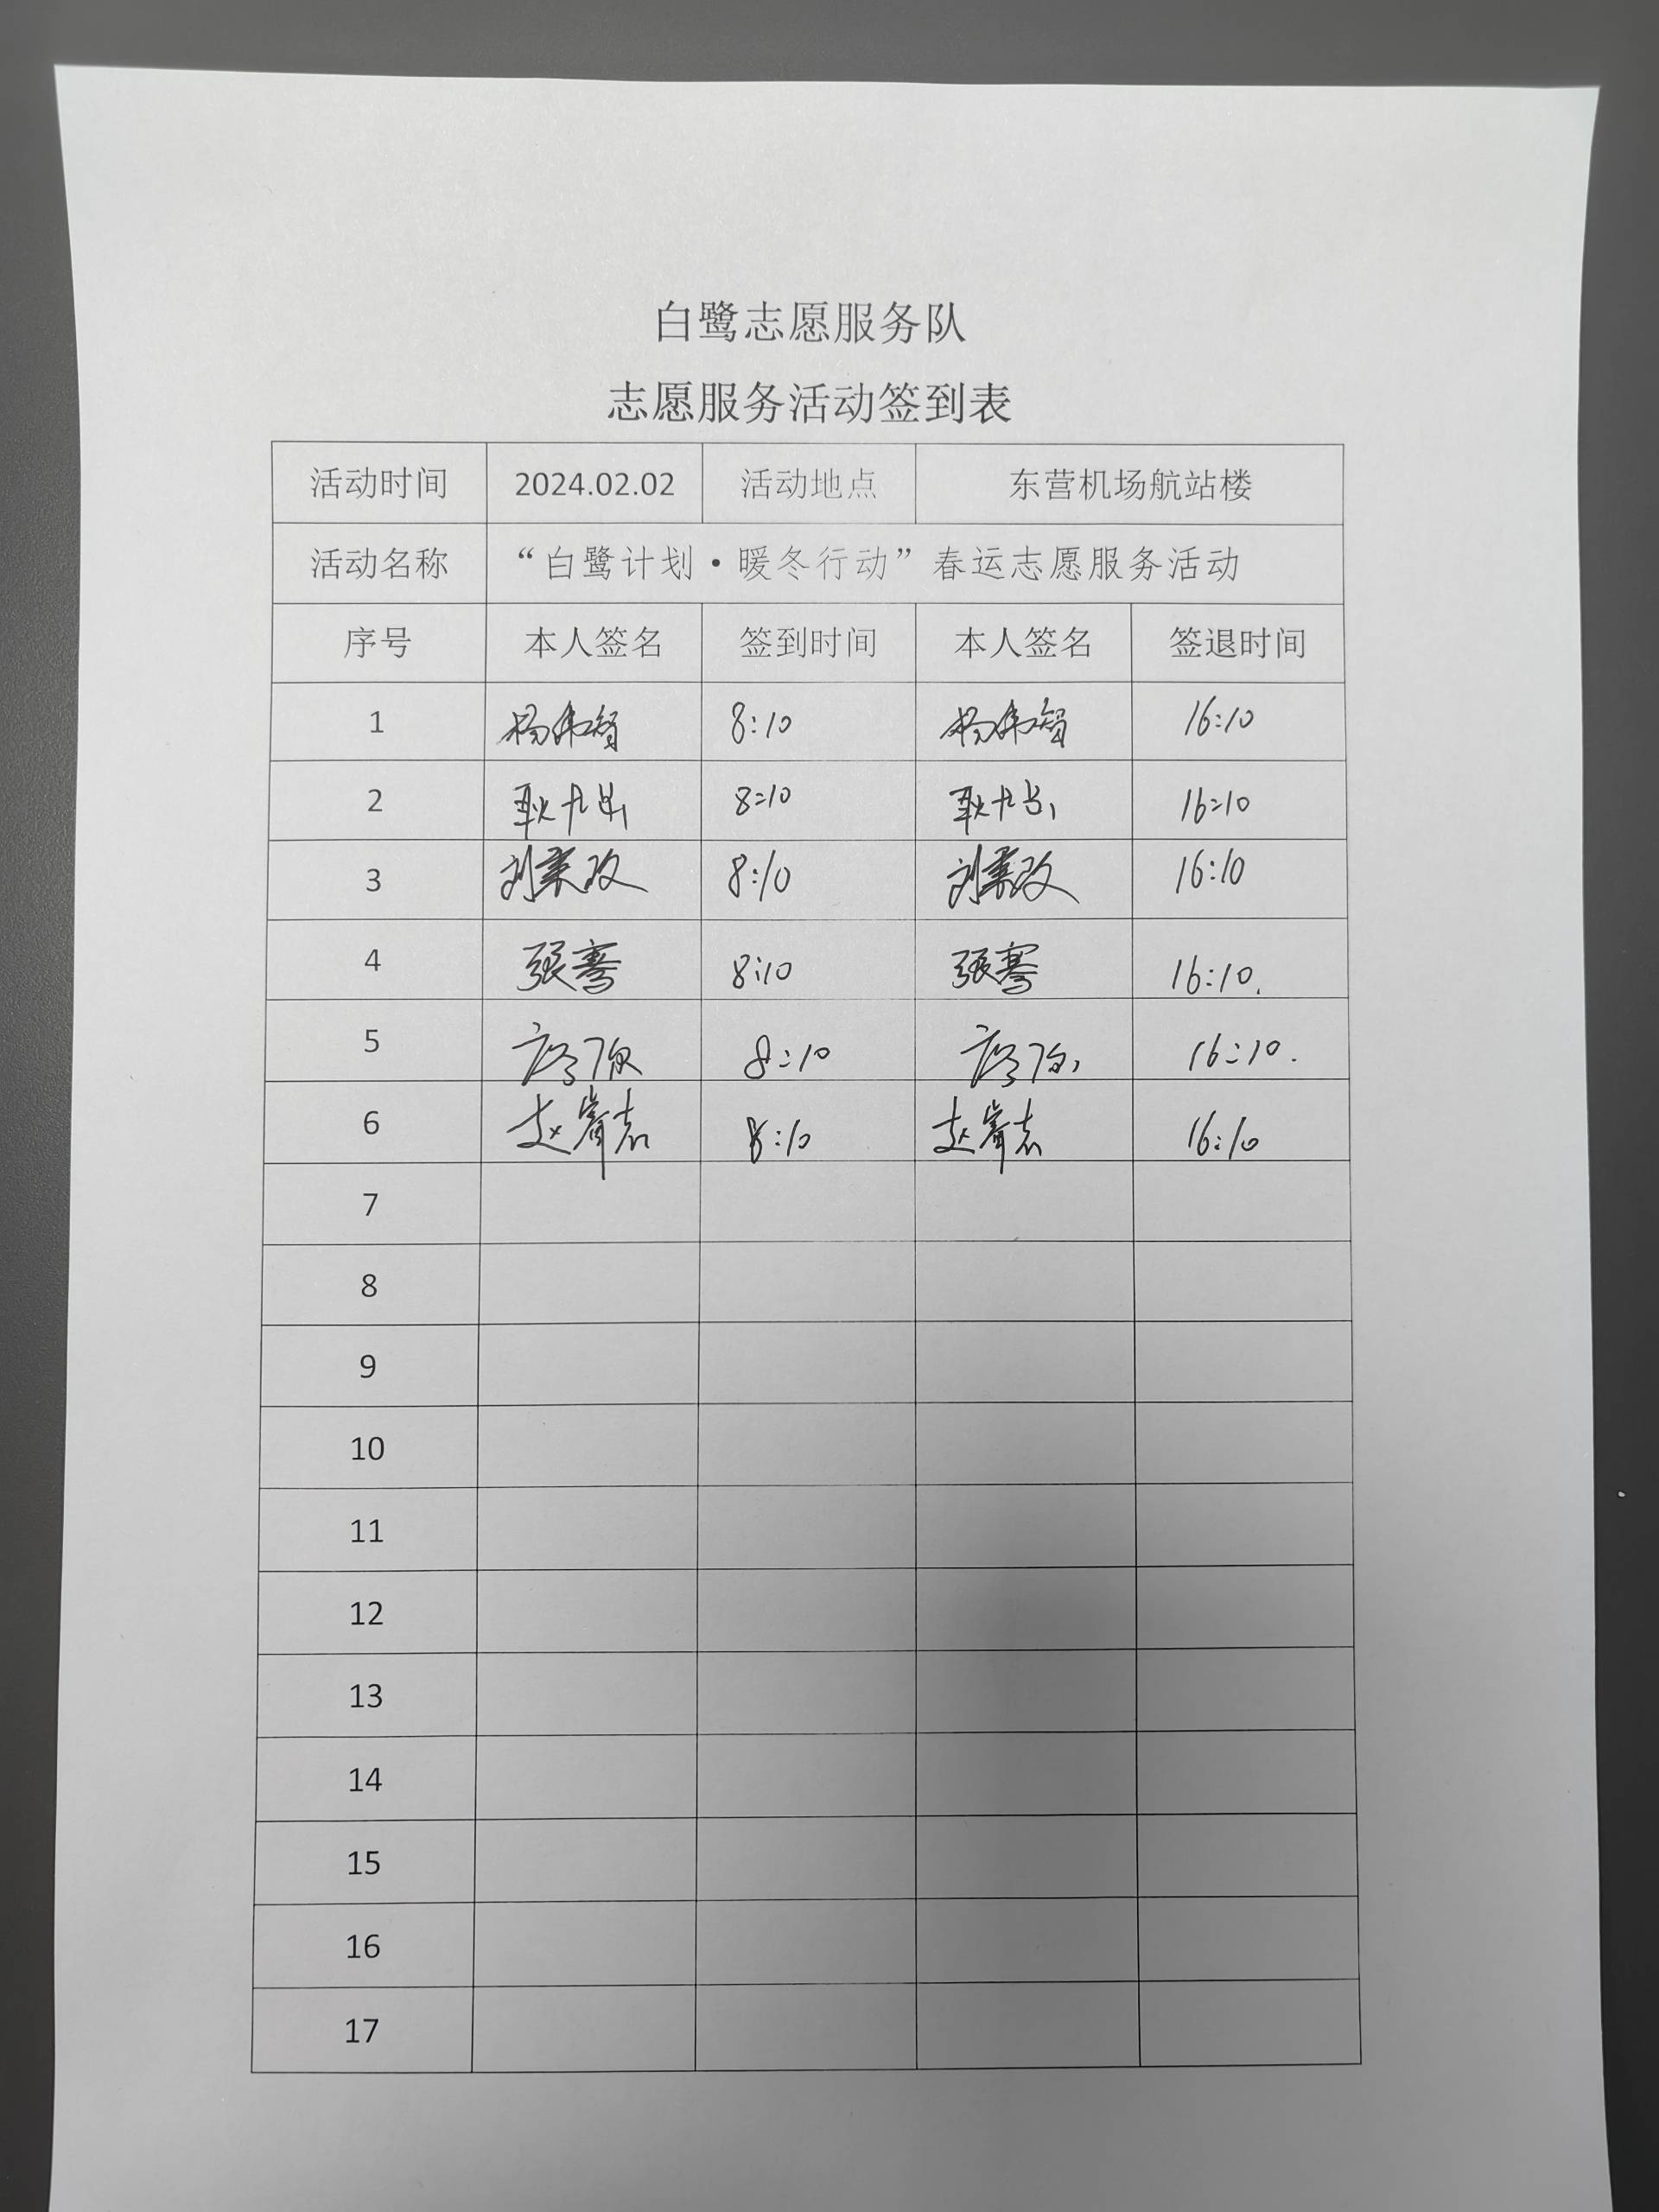 白鹭志愿服务队
志愿服务活动签到表
活动时间 2024.02.02 活动地点 东营机场航站楼
活动名称 “白鹭计划·暖冬行动”春运志愿服务活动
序号 本人签名 签到时间 本人签名 签退时间
1 杨伟智 8:10 杨伟智 16:10
2 8:10 16:10
3 8:10 16:10
4 张骞 8:10 张骞 16:10.
5 8:10 16:10.
6 8:10 16:10
7
8
9
10
11
12
13
14
15
16
17